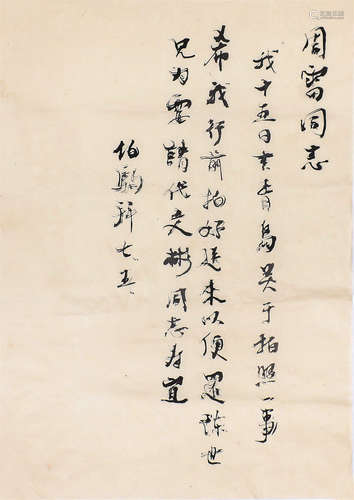 周雷同志
我十五日去青岛关于拍照一事
希我行前拍好送来以便还陈世
兄为要请代文彬同志存宜
伯驹拜 七.五.